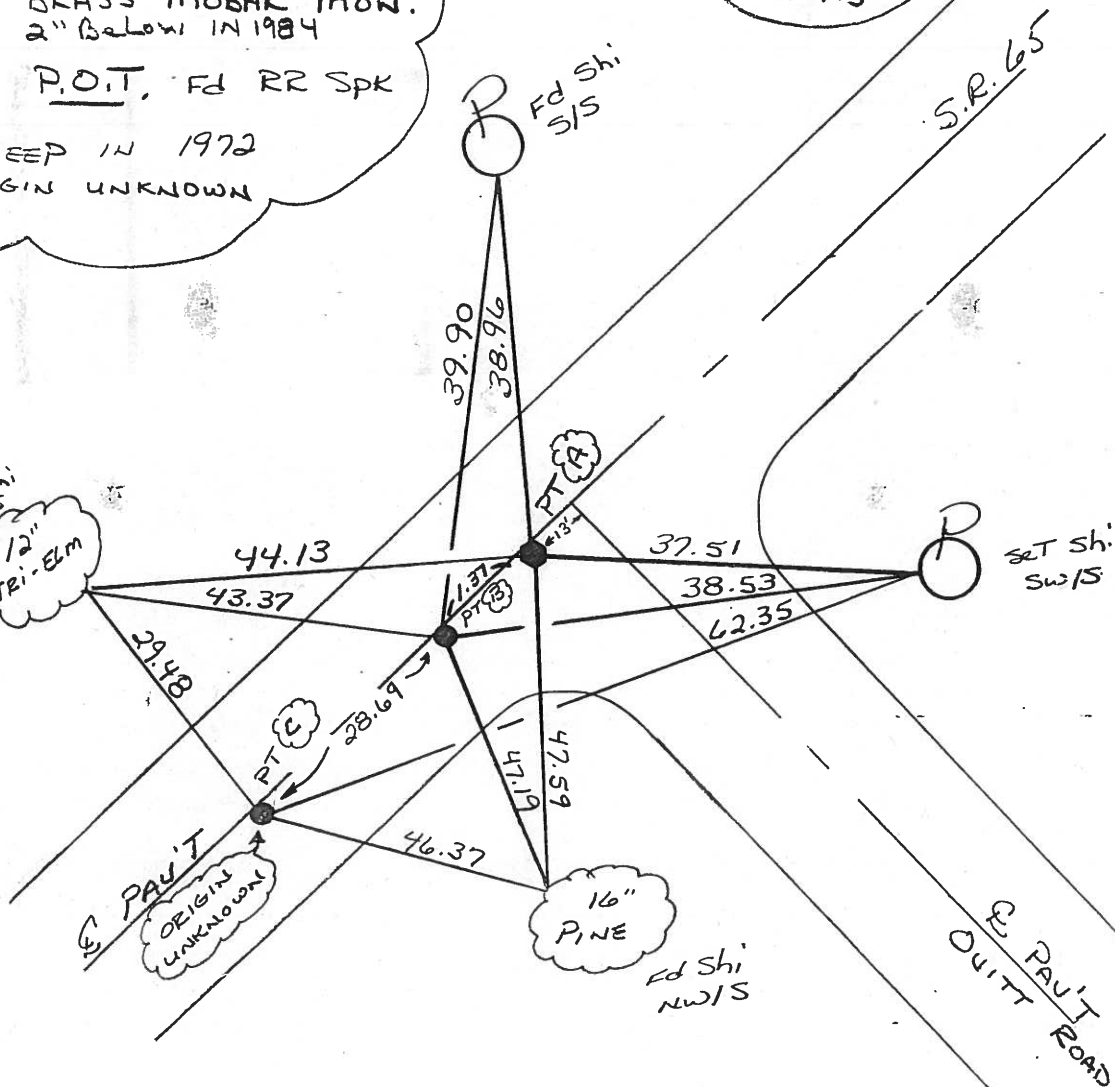 2" Below IN 1984
P.O.T. Fd RR Spk
EEP IN 1972
GIN UNKNOWN
P
Fd Shi
S/S
S.R. 65
39.90
38.96
PT A
13'
12"
TRI-ELM
44.13
43.37
29.48
1.37
PT B
37.51
38.53
62.35
P
SeT Shi
SW/S
28.69
PT C
47.19
47.59
46.37
℄ PAV'T
ORIGIN
UNKNOWN
16"
PINE
Fd Shi
NW/S
℄ PAV'T
OVITT ROAD